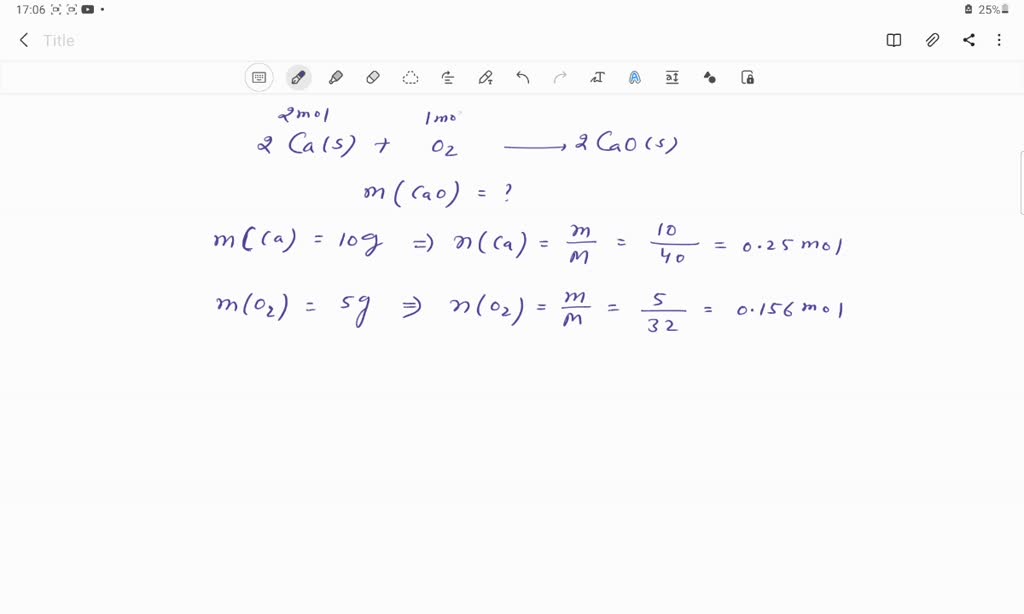 17:06
25%
Title
2mol 1mo
2 Ca(s) + O2 ⟶ 2 CaO(s)
m(CaO) = ?
m(Ca) = 10g ⇒ n(Ca) = m/M = 10/40 = 0.25 mol
m(O2) = 5g ⇒ n(O2) = m/M = 5/32 = 0.156 mol